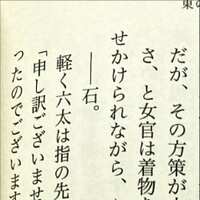 東の
だが、その方策が
さ、と女官は着物を
せかけられながら、
――石。
軽く六太は指の先
「申し訳ございませ
ったのでございます